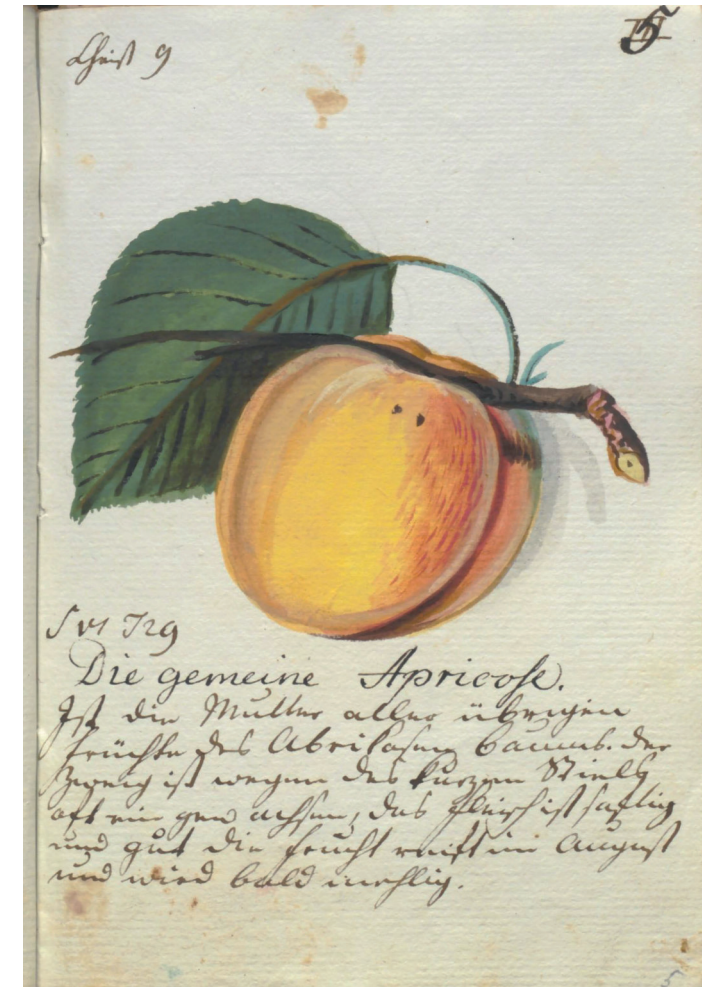 Christ 9
5
S 129
Die gemeine Apricose.
Ist die Mutter aller übrigen
früchte des Abrikosen baums. der
Zweig ist wegen des kurzen Stiels
oft ein gewachsen, das fleisch ist saftig
und gut die frucht reift im August
und wird bald mehlig.
5